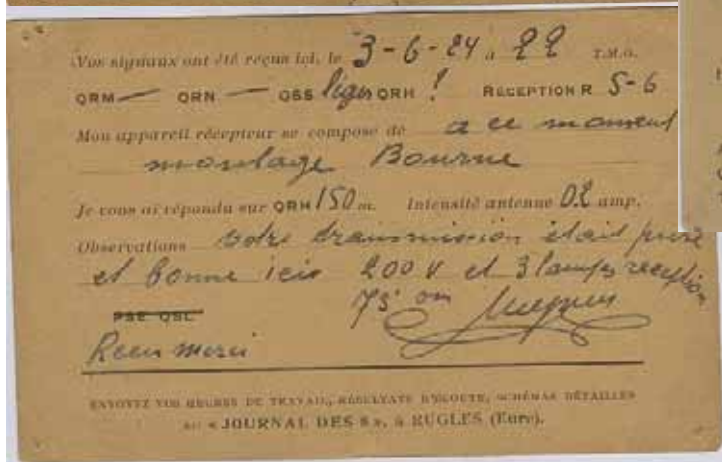 Vos signaux ont été reçus ici, le 3-6-24 à 22 T.M.G.
QRM — QRN — QSS léger QRH ! RÉCEPTION R 5-6
Mon appareil récepteur se compose de a ce moment
montage Bourne
Je vous ai répondu sur QRH 150 m. Intensité antenne 0.2 amp.
Observations votre transmission était pure
et bonne ici 200 v et 3 lampes réception
73 om
PSE QSL
Reçu merci
ENVOYEZ VOS HEURES DE TRAVAIL, RÉSULTATS D'ÉCOUTE, SCHÉMAS DÉTAILLÉS
AU « JOURNAL DES 8 », à RUGLES (Eure).